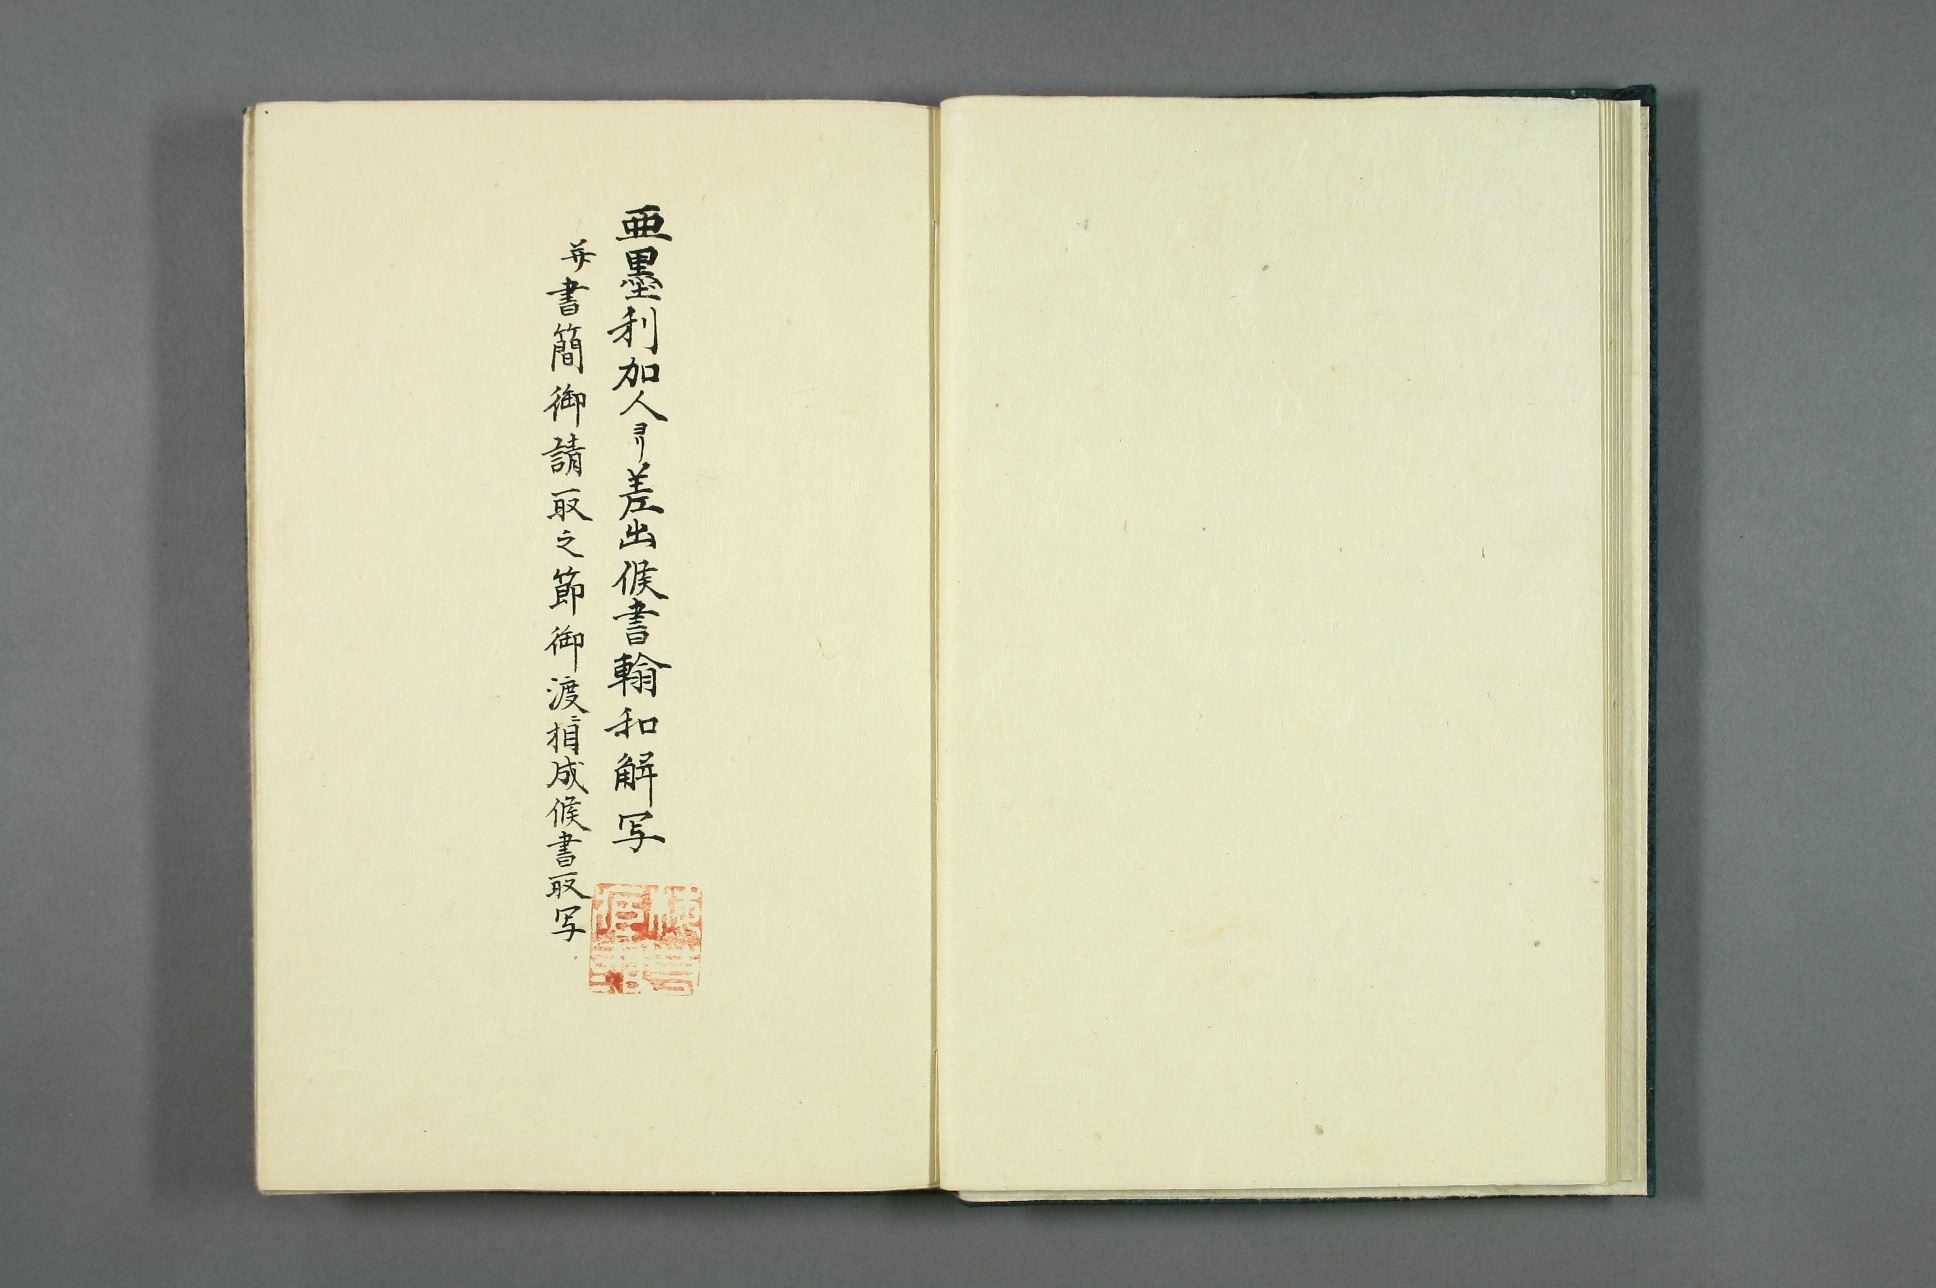 亜墨利加人ヨリ差出候書翰和解写
并書簡御請取之節御渡ニ相成候書取写